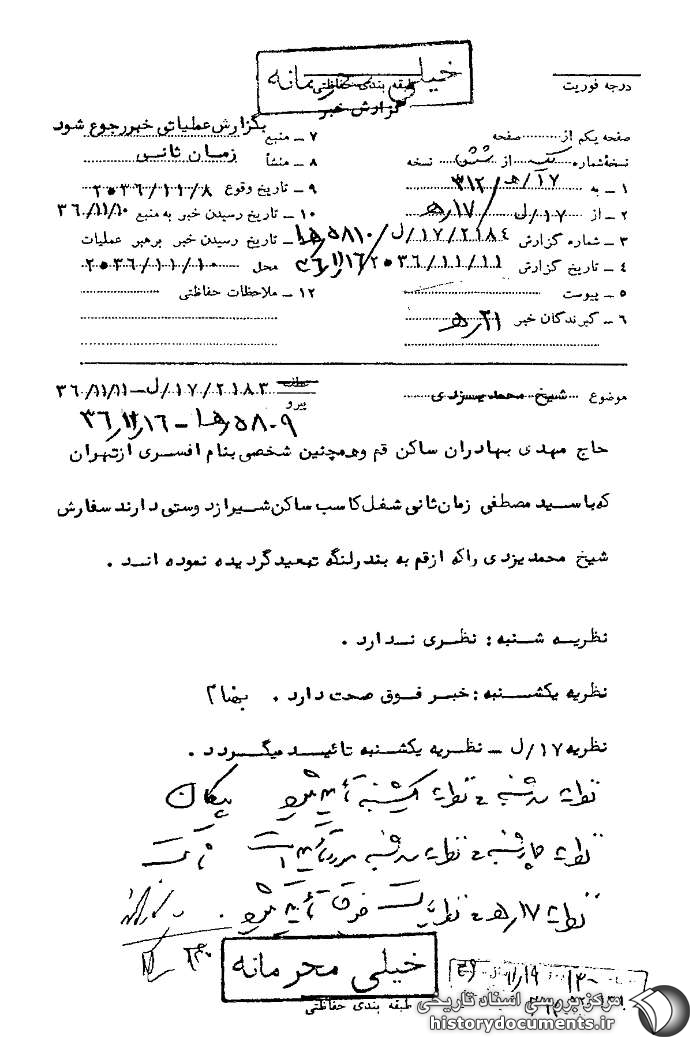 خیلی محرمانه
درجه فوریت
طبقه بندی حفاظتی
گزارش خبر
صفحه یکم از صفحه
نسخهٔ شماره یک از شش نسخه
۱ ـ به ۳۱۲/ ۲۱/ه
۲ ـ از ۱۷/ل ۱۷/ه
۳ ـ شماره گزارش ۲۱۸۴/۱۷/ل ۵۸۱۰/ه‍۱
۴ ـ تاریخ گزارش ۲۰۳۶/۱۱/۱۱ ۳۶/۱۱/۱۶
۵ ـ پیوست
۶ ـ گیرندگان خبر ۲۱/ه
۷ ـ منبع بگزارش عملیاتی خبر رجوع شود
۸ ـ منشأ زمان ثانی
۹ ـ تاریخ وقوع ۲۰۳۶/۱۱/۸
۱۰ ـ تاریخ رسیدن خبر به منبع ۳۶/۱۱/۱۰
۱۱ ـ تاریخ رسیدن خبر برهبر عملیات
محل ۲۰۳۶/۱۱/۱۰
۱۲ ـ ملاحظات حفاظتی
موضوع شیخ محمد یزدی
پیرو ۲۱۸۳/۱۷/ل ـ ۳۶/۱۱/۱۱
۵۸۰۹/ه‍۱ ـ ۳۶/۱۱/۱۶
حاج مهدی بهادران ساکن قم وهمچنین شخصی بنام افسری ازتهران
که با سید مصطفی زمان ثانی شغل کاسب ساکن شیراز دوستی دارند سفارش
شیخ محمد یزدی راکه ازقم به بندرلنگه تبعید گردیده نموده اند .
نظریه شنبه : نظری ندارد .
نظریه یکشنبه : خبر فوق صحت دارد .
نظریه ۱۷/ل ـ نظریه یکشنبه تائید میگردد .
نظریه سه شنبه ـ نظریه یکشنبه تأیید میشود پیکان
نظریه چهارشنبه ـ نظریه سه شنبه مورد تأیید است
نظریه ۱۷/ه ـ نظریات فوق تأیید میشود .
خیلی محرمانه
طبقه بندی حفاظتی
مرکز بررسی اسناد تاریخی
historydocuments.ir